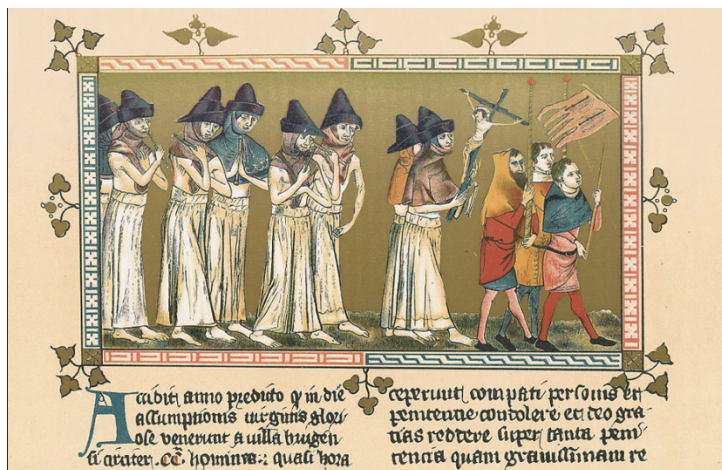 Accidit anno predicto q in die
assumptionis uirginis glori
ose venerunt a uilla brugen
si circiter .cc. homines: quasi hora
ceperunt compati personis et
penitentie condolere et deo gra-
tias reddere super tanta peni
tencia quam grauissimam re